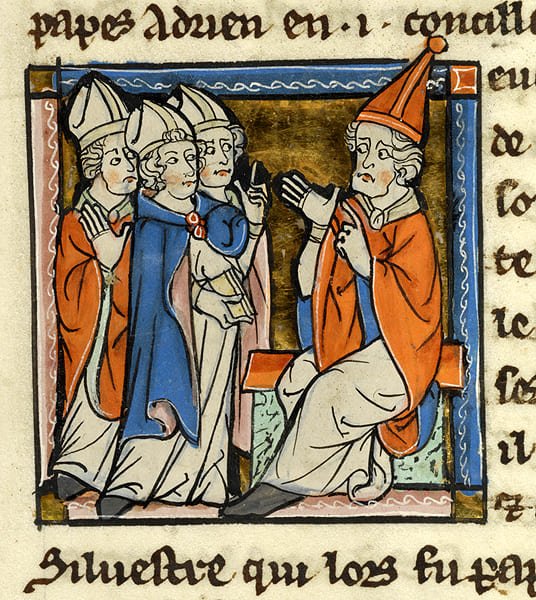 papes Adrien en · i · concille
eu
de
so
te
le
ses
il
⁊
Silvestre qui lors fu pap